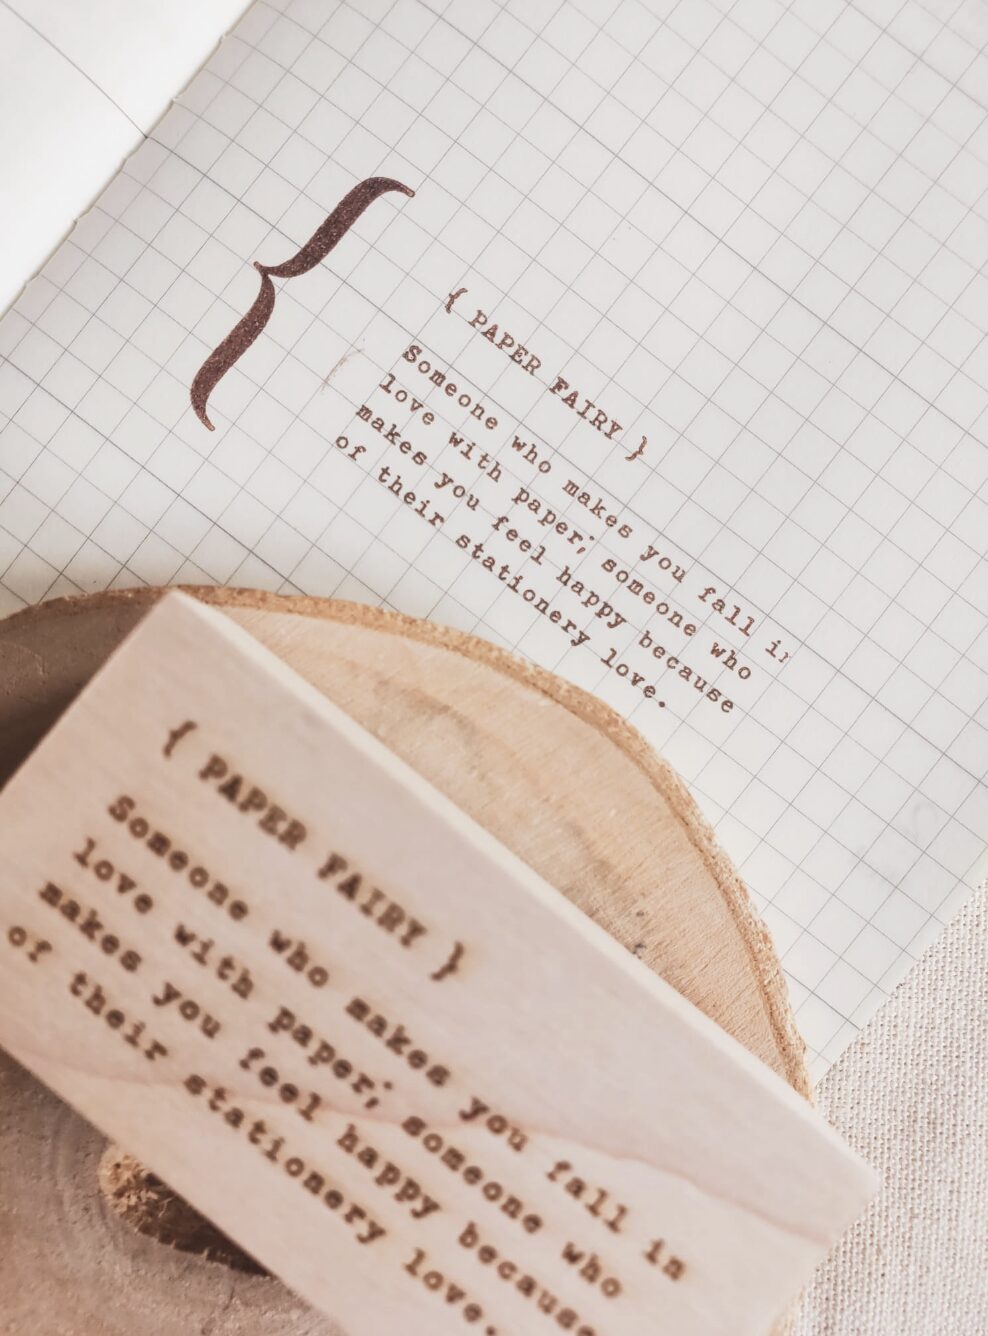 {
{ PAPER FAIRY }
Someone who makes you fall in
love with paper; someone who
makes you feel happy because
of their stationery love.
{ PAPER FAIRY }
Someone who makes you fall in
love with paper; someone who
makes you feel happy because
of their stationery love.